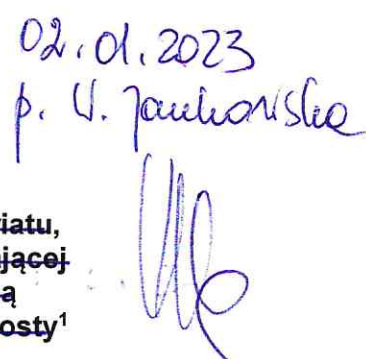 02.01.2023
p. W. Jankowska
iatu,
jącej
ą
osty¹